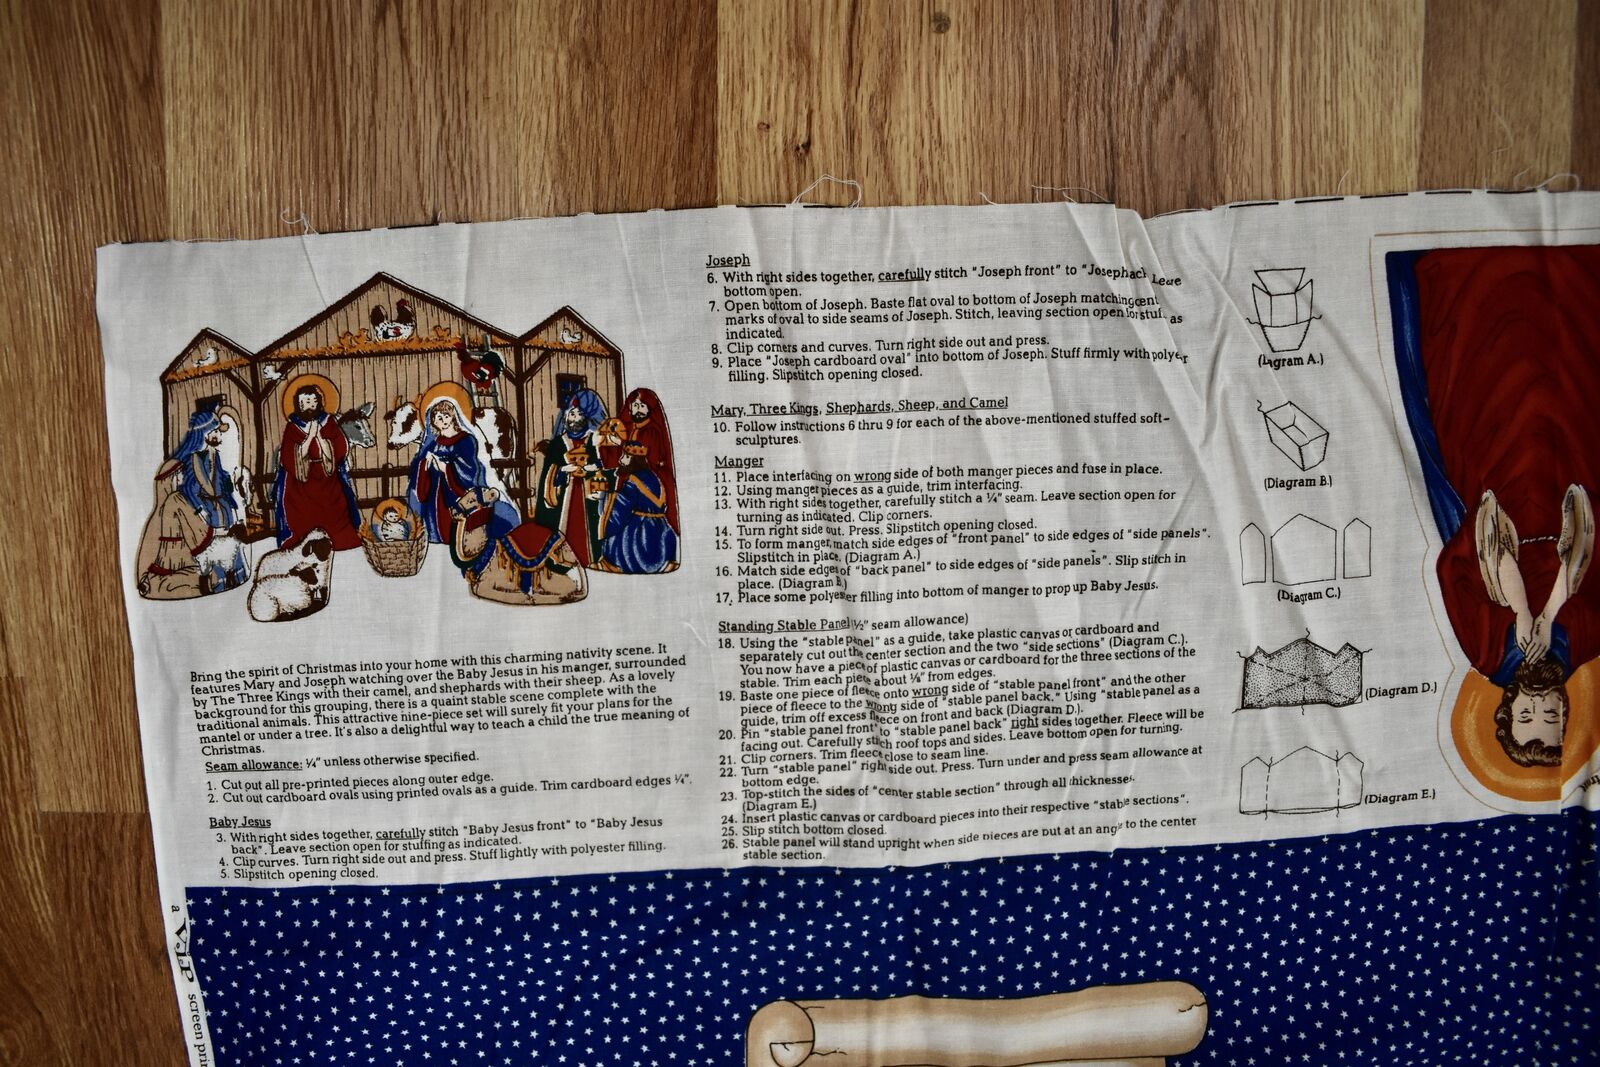 Bring the spirit of Christmas into your home with this charming nativity scene. It
features Mary and Joseph watching over the Baby Jesus in his manger, surrounded
by The Three Kings with their camel, and shephards with their sheep. As a lovely
background for this grouping, there is a quaint stable scene complete with the
traditional animals. This attractive nine-piece set will surely fit your plans for the
mantel or under a tree. It's also a delightful way to teach a child the true meaning of
Christmas.
Seam allowance: ¼" unless otherwise specified.
1. Cut out all pre-printed pieces along outer edge.
2. Cut out cardboard ovals using printed ovals as a guide. Trim cardboard edges ¼".
Baby Jesus
3. With right sides together, carefully stitch "Baby Jesus front" to "Baby Jesus
back". Leave section open for stuffing as indicated.
4. Clip curves. Turn right side out and press. Stuff lightly with polyester filling.
5. Slipstitch opening closed.
Joseph
6. With right sides together, carefully stitch "Joseph front" to "Joseph Leave
bottom open.
7. Open bottom of Joseph. Baste flat oval to bottom of Joseph matching cent
marks of oval to side seams of Joseph. Stitch, leaving section open for stuf as
indicated.
8. Clip corners and curves. Turn right side out and press.
9. Place "Joseph cardboard oval" into bottom of Joseph. Stuff firmly with polye r
filling. Slipstitch opening closed.
Mary, Three Kings, Shephards, Sheep, and Camel
10. Follow instructions 6 thru 9 for each of the above-mentioned stuffed soft-
sculptures.
Manger
11. Place interfacing on wrong side of both manger pieces and fuse in place.
12. Using manger pieces as a guide, trim interfacing.
13. With right sides together, carefully stitch a ¼" seam. Leave section open for
turning as indicated. Clip corners.
14. Turn right side out. Press. Slipstitch opening closed.
15. To form manger, match side edges of "front panel" to side edges of "side panels".
Slipstitch in place. (Diagram A.)
16. Match side edges of "back panel" to side edges of "side panels". Slip stitch in
place. (Diagram B.)
17. Place some polyester filling into bottom of manger to prop up Baby Jesus.
Standing Stable Panel (½" seam allowance)
18. Using the "stable panel" as a guide, take plastic canvas or cardboard and
separately cut out the center section and the two "side sections" (Diagram C.).
You now have a piece of plastic canvas or cardboard for the three sections of the
stable. Trim each piece about ⅛" from edges.
19. Baste one piece of fleece onto wrong side of "stable panel front" and the other
piece of fleece to the wrong side of "stable panel back." Using "stable panel as a
guide, trim off excess fleece on front and back (Diagram D.).
20. Pin "stable panel front" to "stable panel back" right sides together. Fleece will be
facing out. Carefully stitch roof tops and sides. Leave bottom open for turning.
21. Clip corners. Trim fleece close to seam line.
22. Turn "stable panel" right side out. Press. Turn under and press seam allowance at
bottom edge.
23. Top-stitch the sides of "center stable section" through all thicknesses.
(Diagram E.)
24. Insert plastic canvas or cardboard pieces into their respective "stable sections".
25. Slip stitch bottom closed.
26. Stable panel will stand upright when side pieces are put at an angle to the center
stable section.
(Diagram A.)
(Diagram B.)
(Diagram C.)
(Diagram D.)
(Diagram E.)
a VIP screen prin